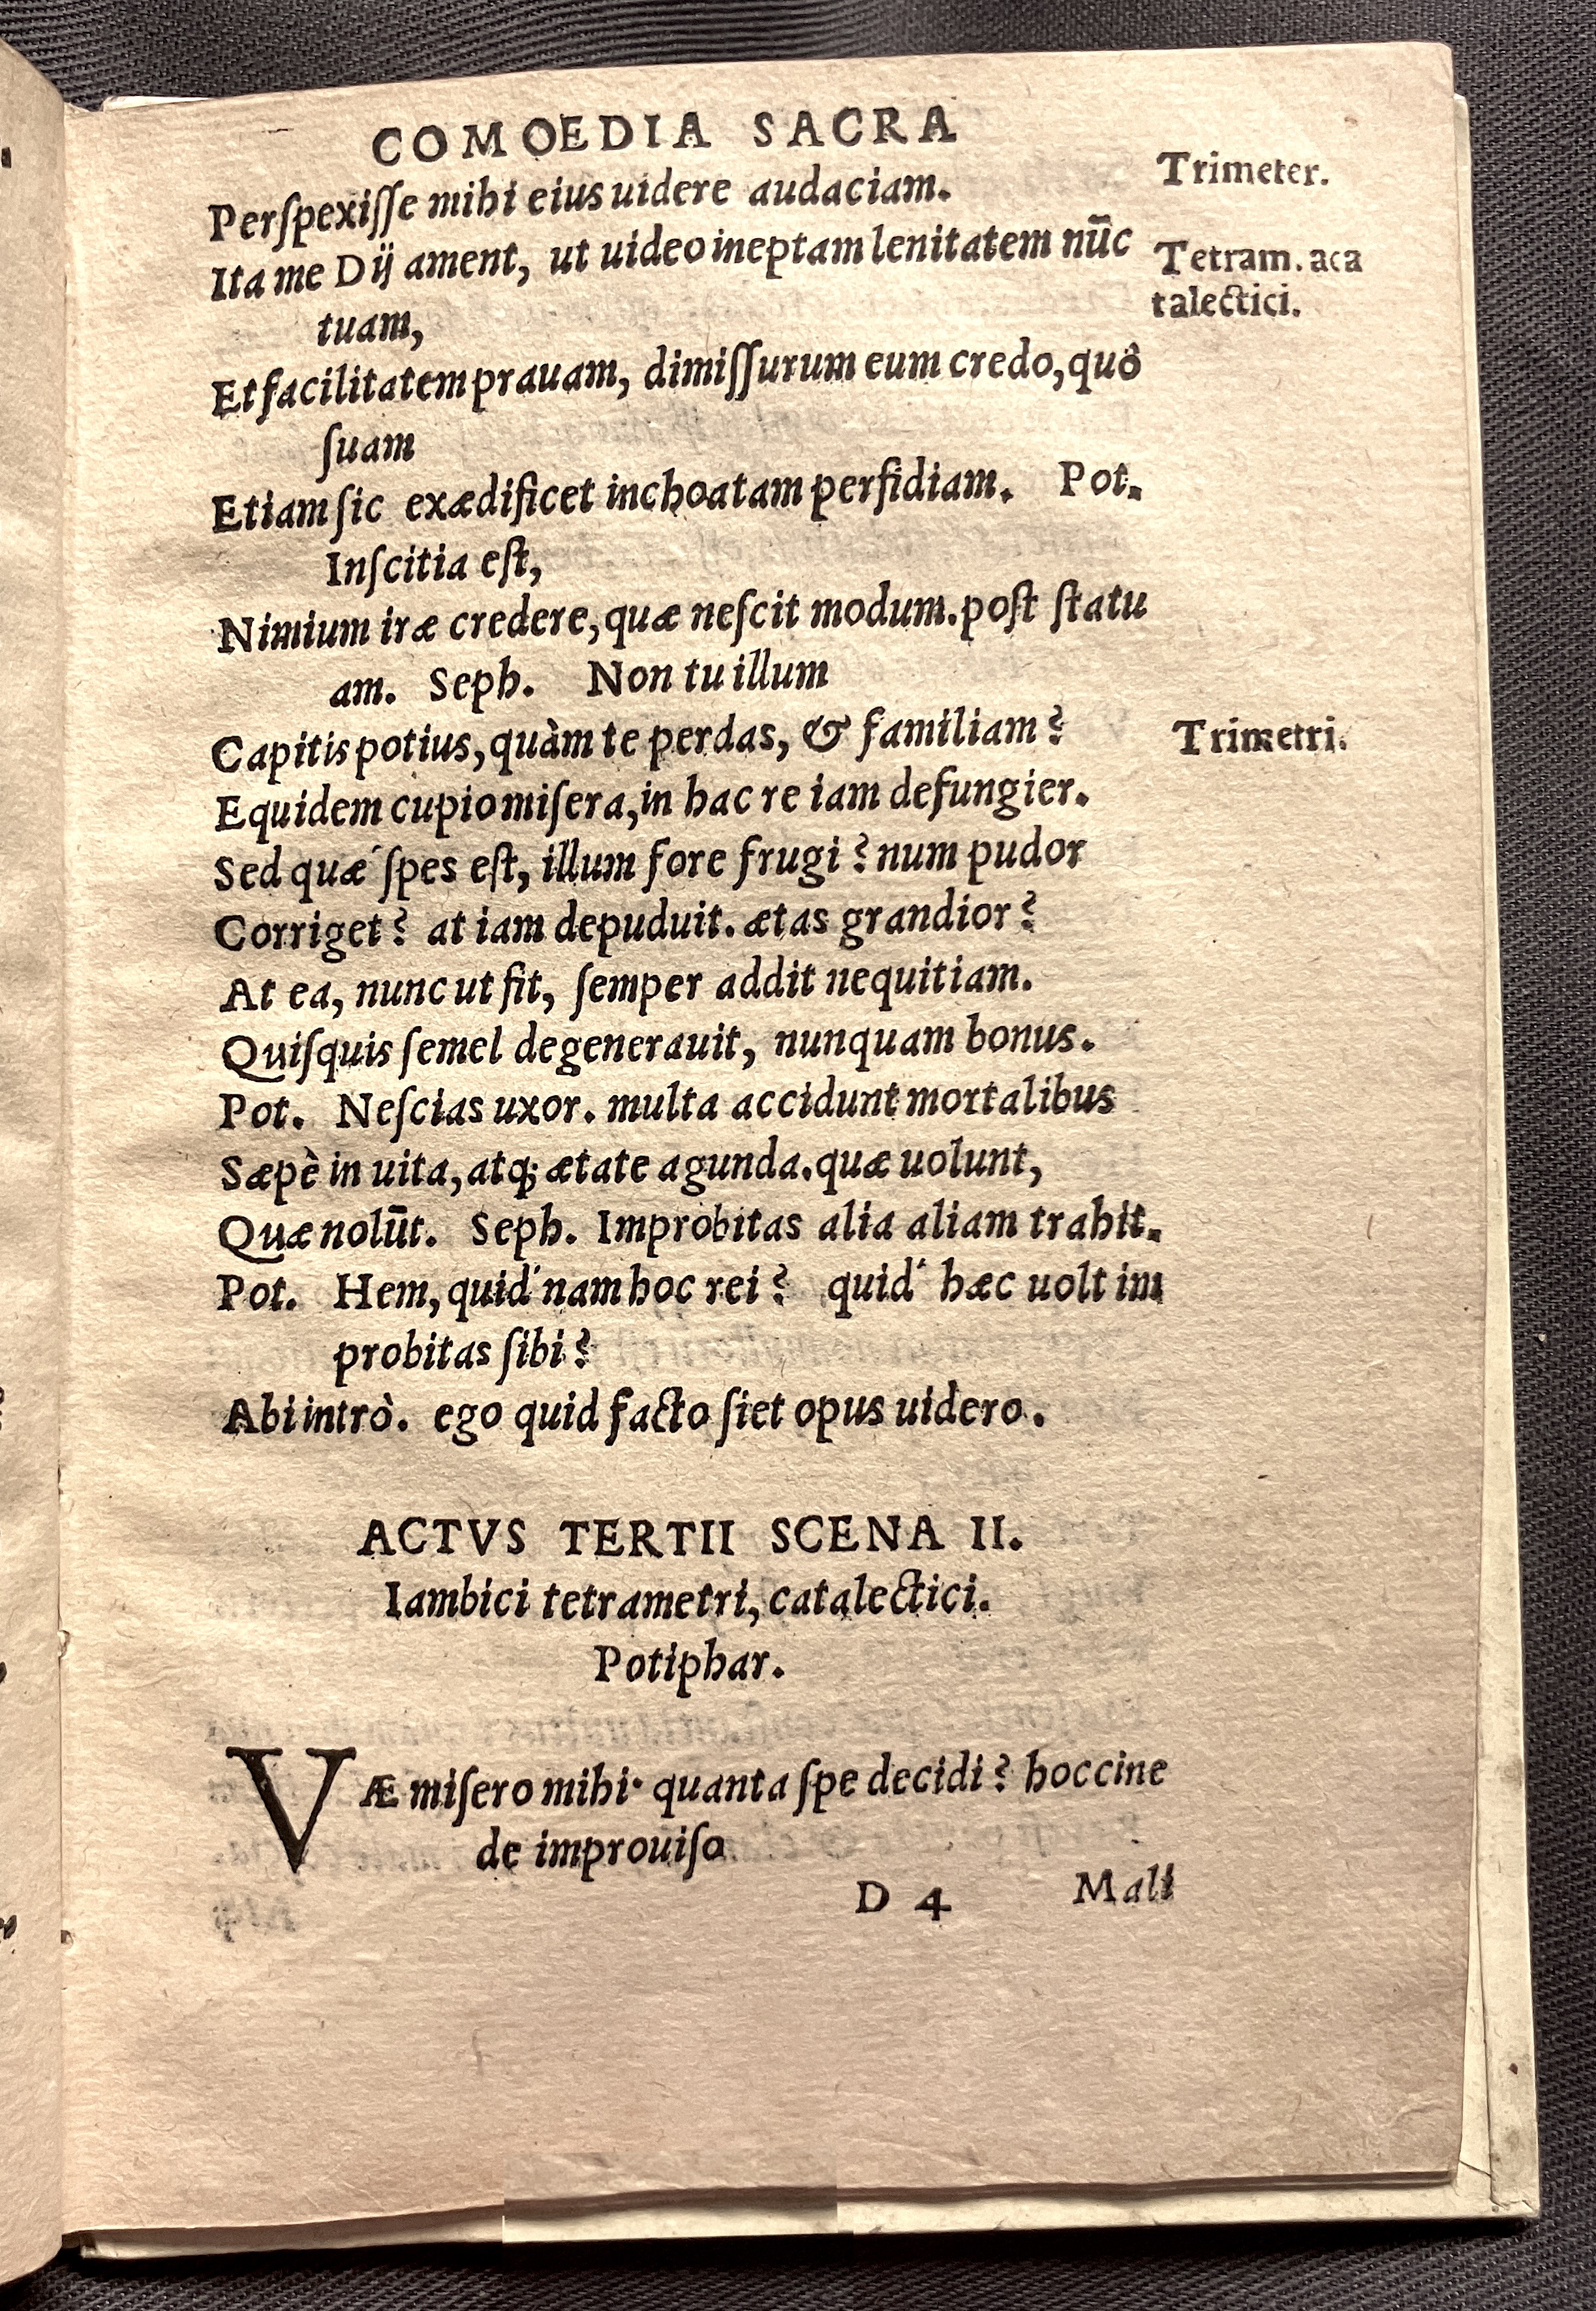 COMOEDIA SACRA
Perſpexiſſe mihi eius uidere audaciam.
Trimeter.
Ita me Dij ament, ut uideo ineptam lenitatem nūc
tuam,
Tetram. aca
talectici.
Et facilitatem prauam, dimiſſurum eum credo, quô
ſuam
Etiam ſic exædificet inchoatam perfidiam. Pot.
Inſcitia eſt,
Nimium iræ credere, quæ neſcit modum. poſt ſtatu
am. Seph. Non tu illum
Capitis potius, quàm te perdas, & familiam?
Trimetri.
Equidem cupio miſera, in hac re iam defungier.
Sed quæ´ ſpes eſt, illum fore frugi? num pudor
Corriget? at iam depuduit. ætas grandior?
At ea, nunc ut fit, ſemper addit nequitiam.
Quiſquis ſemel degenerauit, nunquam bonus.
Pot. Neſcias uxor. multa accidunt mortalibus
Sæpè in uita, atq; ætate agunda. quæ uolunt,
Quæ nolūt. Seph. Improbitas alia aliam trahit.
Pot. Hem, quid´ nam hoc rei? quid´ hæc uolt im
probitas ſibi?
Abi intrò. ego quid facto ſiet opus uidero.
ACTVS TERTII SCENA II.
Iambici tetrametri, catalectici.
Potiphar.
VÆ miſero mihi· quanta ſpe decidi? hoccine
de improuiſo
D 4 Mali